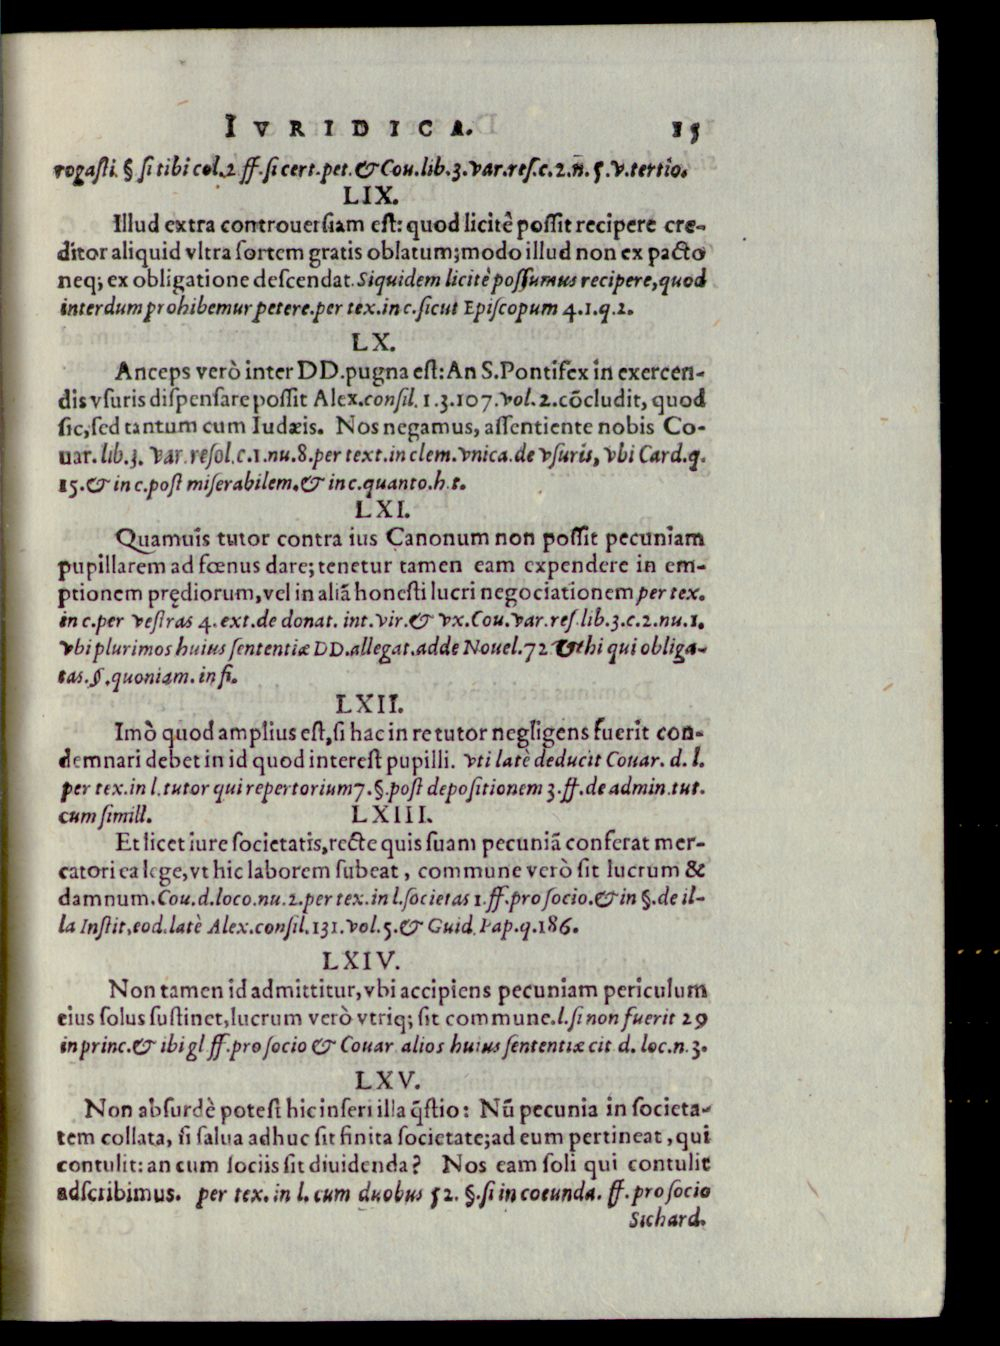 IVRIDICA. 15
rogaſti. § ſi tibi col. 2 ff. ſi cert. pet. & Cou. lib. 3. var. reſ. c. 2. n̄. 5. v. tertio.
LIX.
Illud extra controuerſiam eſt: quod licitè poſſit recipere cre-
ditor aliquid vltra ſortem gratis oblatum; modo illud non ex pacto
neq; ex obligatione deſcendat. Siquidem licitè poſſumus recipere, quod
interdum prohibemur petere. per tex. in c. ſicut Epiſcopum 4. 1. q. 2.
LX.
Anceps verò inter DD. pugna eſt: An S. Pontifex in exercen-
dis vſuris diſpenſare poſſit Alex. conſil. 1. 3. 107. vol. 2. cōcludit, quod
ſic, ſed tantum cum Iudæis. Nos negamus, aſſentiente nobis Co-
uar. lib. 3. var. reſol. c. 1. nu. 8. per text. in clem. vnica. de vſuris, vbi Card. q.
15. & in c. poſt miſerabilem. & in c. quanto. h. t.
LXI.
Quamuis tutor contra ius Canonum non poſſit pecuniam
pupillarem ad fœnus dare; tenetur tamen eam expendere in em-
ptionem prędiorum, vel in aliā honeſti lucri negociationem per tex.
in c. per veſtras 4. ext. de donat. int. vir. & vx. Cou. var. reſ. lib. 3. c. 2. nu. 1.
vbi plurimos huius ſententiæ DD. allegat. adde Nouel. 72 Vt hi qui obliga-
tas. §. quoniam. in fi.
LXII.
Imò quod amplius eſt, ſi hac in re tutor negligens fuerit con-
demnari debet in id quod intereſt pupilli. vti latè deducit Couar. d. l.
per tex. in l. tutor qui repertorium 7. §. poſt depoſitionem 3. ff. de admin. tut.
cum ſimill. LXIII.
Et licet iure ſocietatis, recte quis ſuam pecuniā conferat mer-
catori ea lege, vt hic laborem ſubeat, commune verò ſit lucrum &
damnum. Cou. d. loco. nu. 2. per tex. in l. ſocietas 1. ff. pro ſocio. & in §. de il-
la Inſtit. eod. latè Alex. conſil. 131. vol. 5. & Guid. Pap. q. 186.
LXIV.
Non tamen id admittitur, vbi accipiens pecuniam periculum
eius ſolus ſuſtinet, lucrum verò vtriq; ſit commune. l. ſi non fuerit 29
in princ. & ibi gl ff. pro ſocio & Couar alios huius ſententiæ cit d. loc. n. 3.
LXV.
Non abſurdè poteſt hic inſeri illa q̄ſtio: Nū pecunia in ſocieta-
tem collata, ſi ſalua adhuc ſit finita ſocietate; ad eum pertineat, qui
contulit: an cum ſociis ſit diuidenda? Nos eam ſoli qui contulit
adſcribimus. per tex. in l. cum duobus 52. §. ſi in coeunda. ff. pro ſocio
Sichard.